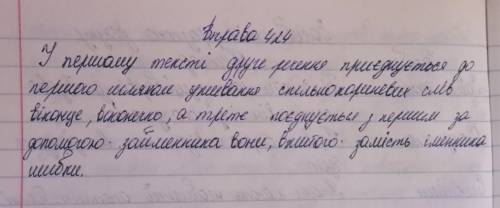 Вправа 424
У першому тексті друге речення приєднується до
першого шляхом уживання спільнокореневих слів
віконце, віконечко, а третє поєднується з першим за
допомогою займенника вони, вжитого замість іменника
шибки.